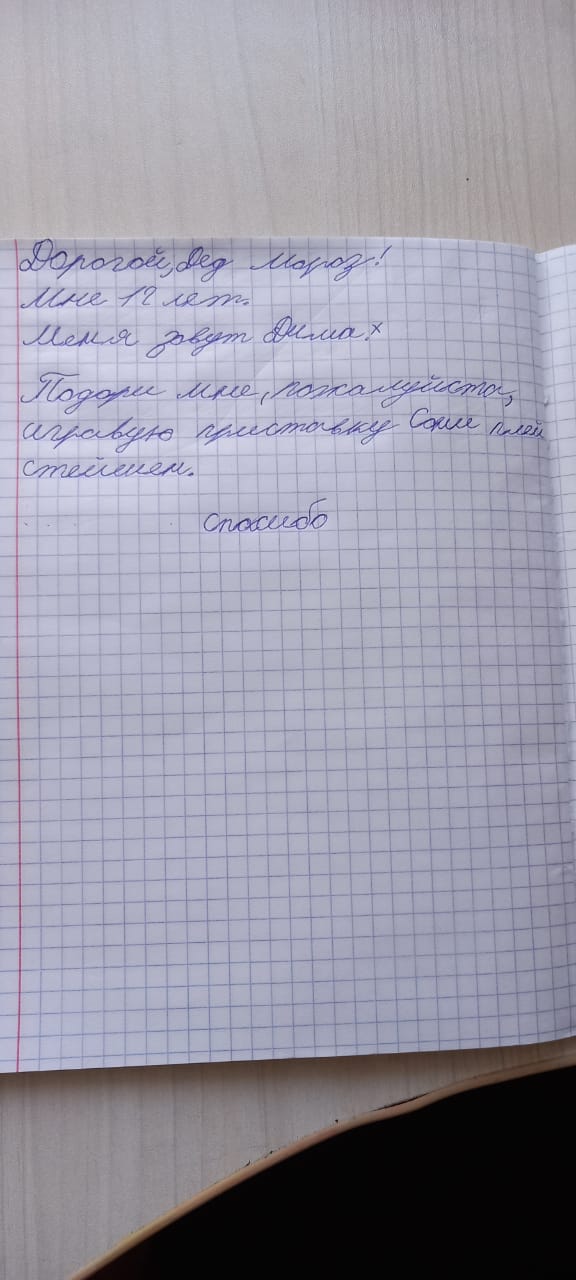 Дорогой, Дед Мороз!
Мне 12 лет.
Меня зовут Дима.
Подари мне, пожалуйста,
игравую приставку Сони плей
стейшен.
Спасибо